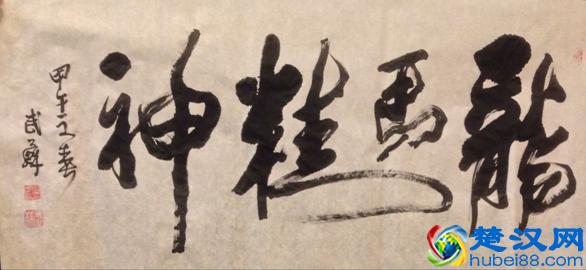 龍馬精神
甲午之春
武
楚汉网
hubei88.com